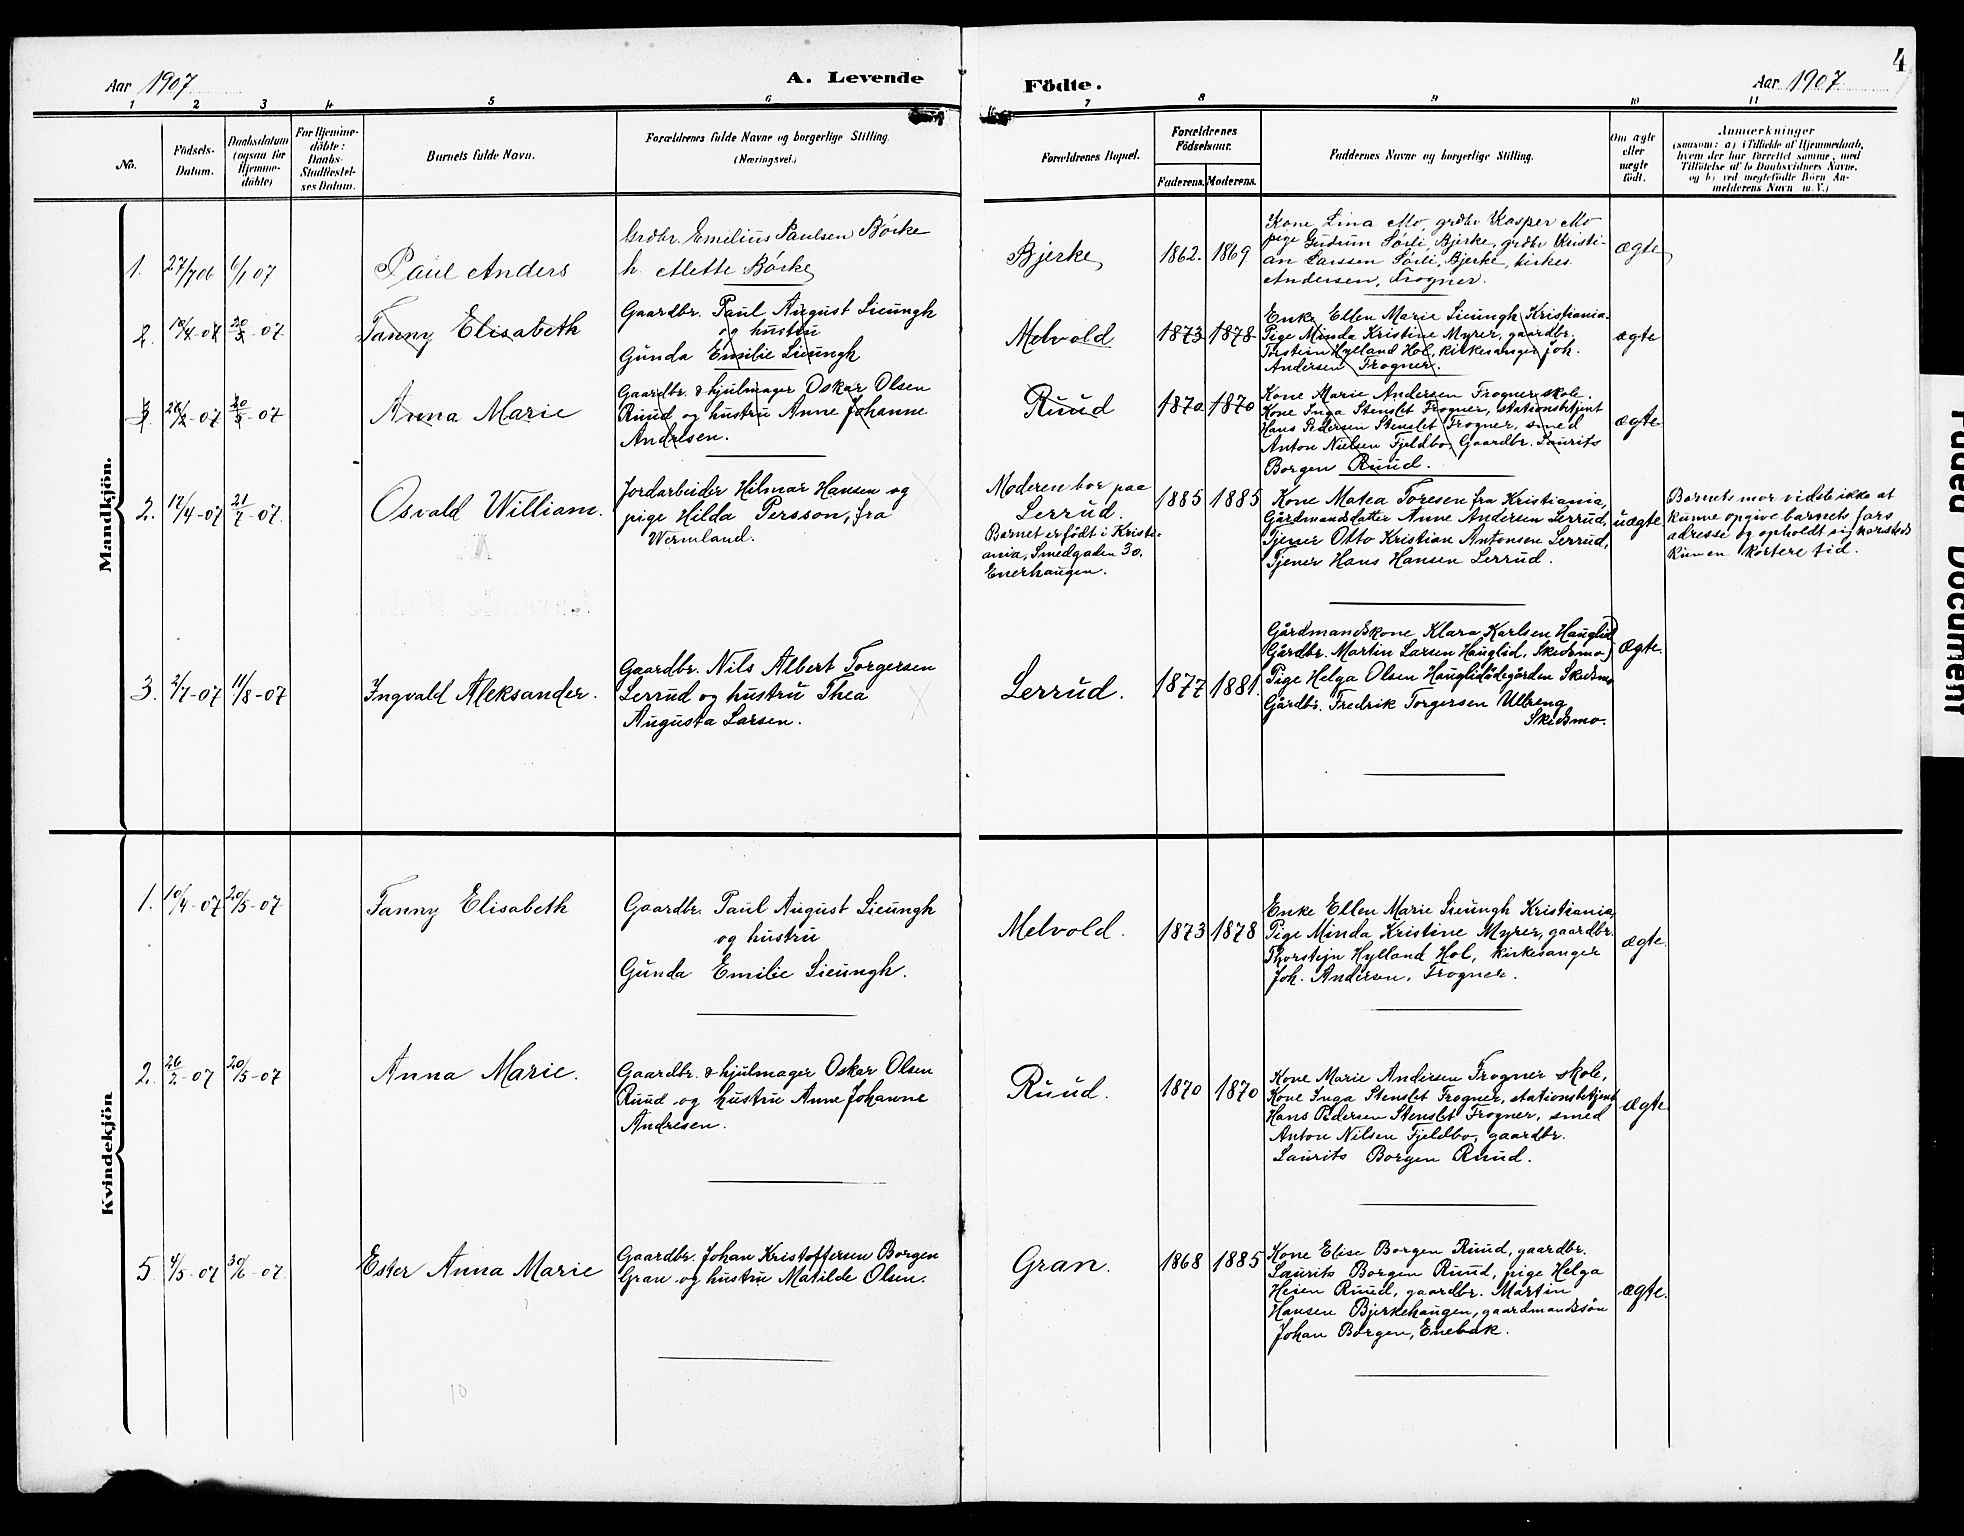 4
Aar 1907
A. Levende
Födte.
Aar 1907
1 2 3 4 5 6 7 8 9 10 11
No.
Födsels-
Datum.
Daabsdatum
(ogsaa for
Hjemme-
döbte)
For Hjemme-
döbte:
Daabs-
Stadfæstel-
ses Datum.
Barnets fulde Navn.
Forældrenes fulde Navne og borgerlige Stilling.
(Næringsvei.)
Forældrenes Bopæl.
Forældrenes
Födselsaar.
Faderens. Moderens.
Faddernes Navne og borgerlige Stilling.
Om ægte
eller
uægte
födt.
Anmærkninger
(saasom: a) i Tilfælde af Hjemmedaab,
hvem der har forrettet samme, med
Tilföielse af to Daabsvidners Navne,
og b) ved uægtefödte Börn An-
melderens Navn m. V.)
Mandkjön.
1.
27/7 06
6/1 07
Paul Anders
Grdbr. Emilius Paulsen Börke
h. Mette Börke
Bjerke
1862. 1869
Kone Lina Mo, grdbr Kasper Mo
pige Gudrun Sörli, Bjerke, grdbr Kristi-
an Larssen Sörli, Bjerke, kirkes.
Andersen, Frogner.
ægte
2.
10/4-07
20/5-07
Fanny Elisabeth
Gaardbr. Paul August Lieungh
og hustru
Gunda Emilie Lieungh
Melvold
1873 1878
Enke Ellen Marie Lieungh Kristiania.
Pige Minda Kristine Myrer, gaardbr.
Torstein Hylland Hol, kirkesanger Joh.
Andersen Frogner.
ægte
3.
26/2-07
20/5-07
Anna Marie
Gaardbr. & hjulmager Oskar Olsen
Ruud og hustru Anne Johanne
Andresen.
Ruud
1870 1870
Kone Marie Andersen Frogner skole.
Kone Inga Stenslet Frogner, stationsbetjent
Hans Pedersen Stenslet Frogner, smed
Anton Nielsen Fjeldbo, Gaardbr. Laurits
Borgen Ruud.
ægte
2.
17/4-07
21/7-07.
Osvald William.
Jordarbeider Hilmar Hansen og
pige Hilda Persson, fra
Wermland.
Moderen bor paa
Lerrud.
Barnet er född i Kristi-
ania, Smedgaden 30.
Enerhaugen.
1885 1885
Kone Matea Toresen fra Kristiania,
Gårdmandsdatter Anne Andersen Lerrud,
Tjener Otto Kristian Antonsen Lerrud,
Tjener Hans Hansen Lerrud.
uægte
Barnets mor vidste ikke at
kunne opgive barnets fars
adresse og opholdt sig
kun en kortere tid.
3.
2/7-07
11/8-07
Ingvald Aleksander.
Gaardbr. Nils Albert Torgersen
Lerrud og hustru Thea
Augusta Larsen.
Lerrud.
1877 1881.
Gårdmandskone Klara Karlsen Hauglid
Gårdbr. Martin Larsen Hauglid, Skedsmo)
Pige Helga Olsen Hauglidödegården Skedsmo
Gårdbr. Fredrik Torgersen Ulbreng
Skedsmo.
Ægte.
Kvindekjön
1.
10/4-07
20/5-07
Fanny Elisabeth
Gaardbr. Paul August Lieungh
og hustru
Gunda Emilie Lieungh.
Melvold.
1873 1878
Enke Ellen Marie Lieungh Kristiania,
Pige Minda Kristine Myrer, gaardbr.
Thorstejn Hylland Hol, kirkesanger
Joh. Andersen, Frogner.
ægte.
2.
26/2-07
20/5-07
Anna Marie.
Gaardbr. & hjulmager Oskar Olsen
Ruud og hustru Anne Johanne
Andresen.
Ruud.
1870 1870
Kone Marie Andersen Frogner skole,
Kone Inga Stenslet Frogner, stationsbetjent
Hans Pedersen Stenslet Frogner, smed
Anton Nilsen Fjeldbo, gaardbr.
Laurits Borgen Ruud.
ægte
5
4/5-07
30/6-07.
Ester Anna Marie
Gaardbr. Johan Kristoffersen Borgen
Gran og hustru Matilde Olsen.
Gran.
1868 1885
Kone Elise Borgen Ruud, gaardbr.
Laurits Borgen Ruud, pige Helga
Heien Ruud, gaardbr. Martin
Hansen Bjerkehaugen, gaardmandssön
Johan Borgen, Enebak.
ægte.
10
Faded Document